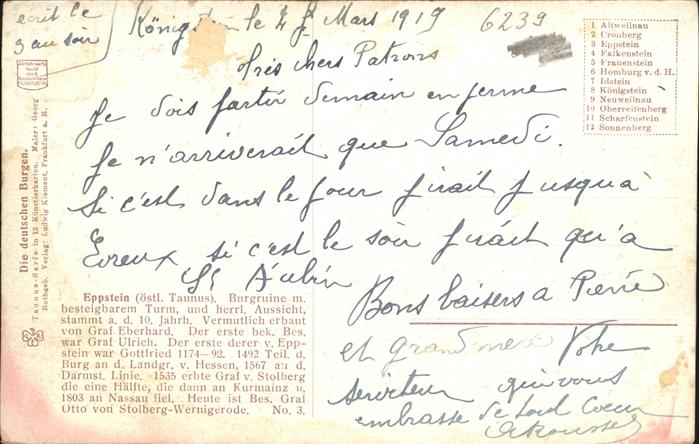 écrit le
3 au soir
Königstein le 4 Mars 1919
6239
très chers Patrons
Je dois partir demain en ferme
Je n'arriverait que Samedi.
Si c'est dans le jour j'irait jusqu'à
Evreux si c'est le soir j'irait qu'a
St Aubin
Bons baisers a Pierre
et grand mère Votre
serviteur qui vous
embrasse de tout Coeur
1 Altweilnau
2 Cronberg
3 Eppstein
4 Falkenstein
5 Frauenstein
6 Homburg v. d. H.
7 Idstein
8 Königstein
9 Neuweilnau
10 Oberreifenberg
11 Scharfenstein
12 Sonnenberg
Die deutschen Burgen.
Taunus-Serie in 12 Künstlerkarten. Maler: Georg
Rothgeb. Verlag: Ludwig Klement, Frankfurt a. M.
Eppstein (östl. Taunus). Burgruine m.
besteigbarem Turm, und herrl. Aussicht,
stammt a. d. 10. Jahrh. Vermutlich erbaut
von Graf Eberhard. Der erste bek. Bes.
war Graf Ulrich. Der erste derer v. Epp-
stein war Gottfried 1174—92. 1492 Teil. d.
Burg an d. Landgr. v. Hessen, 1567 an d.
Darmst. Linie. 1535 erbte Graf v. Stolberg
die eine Hälfte, die dann an Kurmainz u.
1803 an Nassau fiel. Heute ist Bes. Graf
Otto von Stolberg-Wernigerode. No. 3.